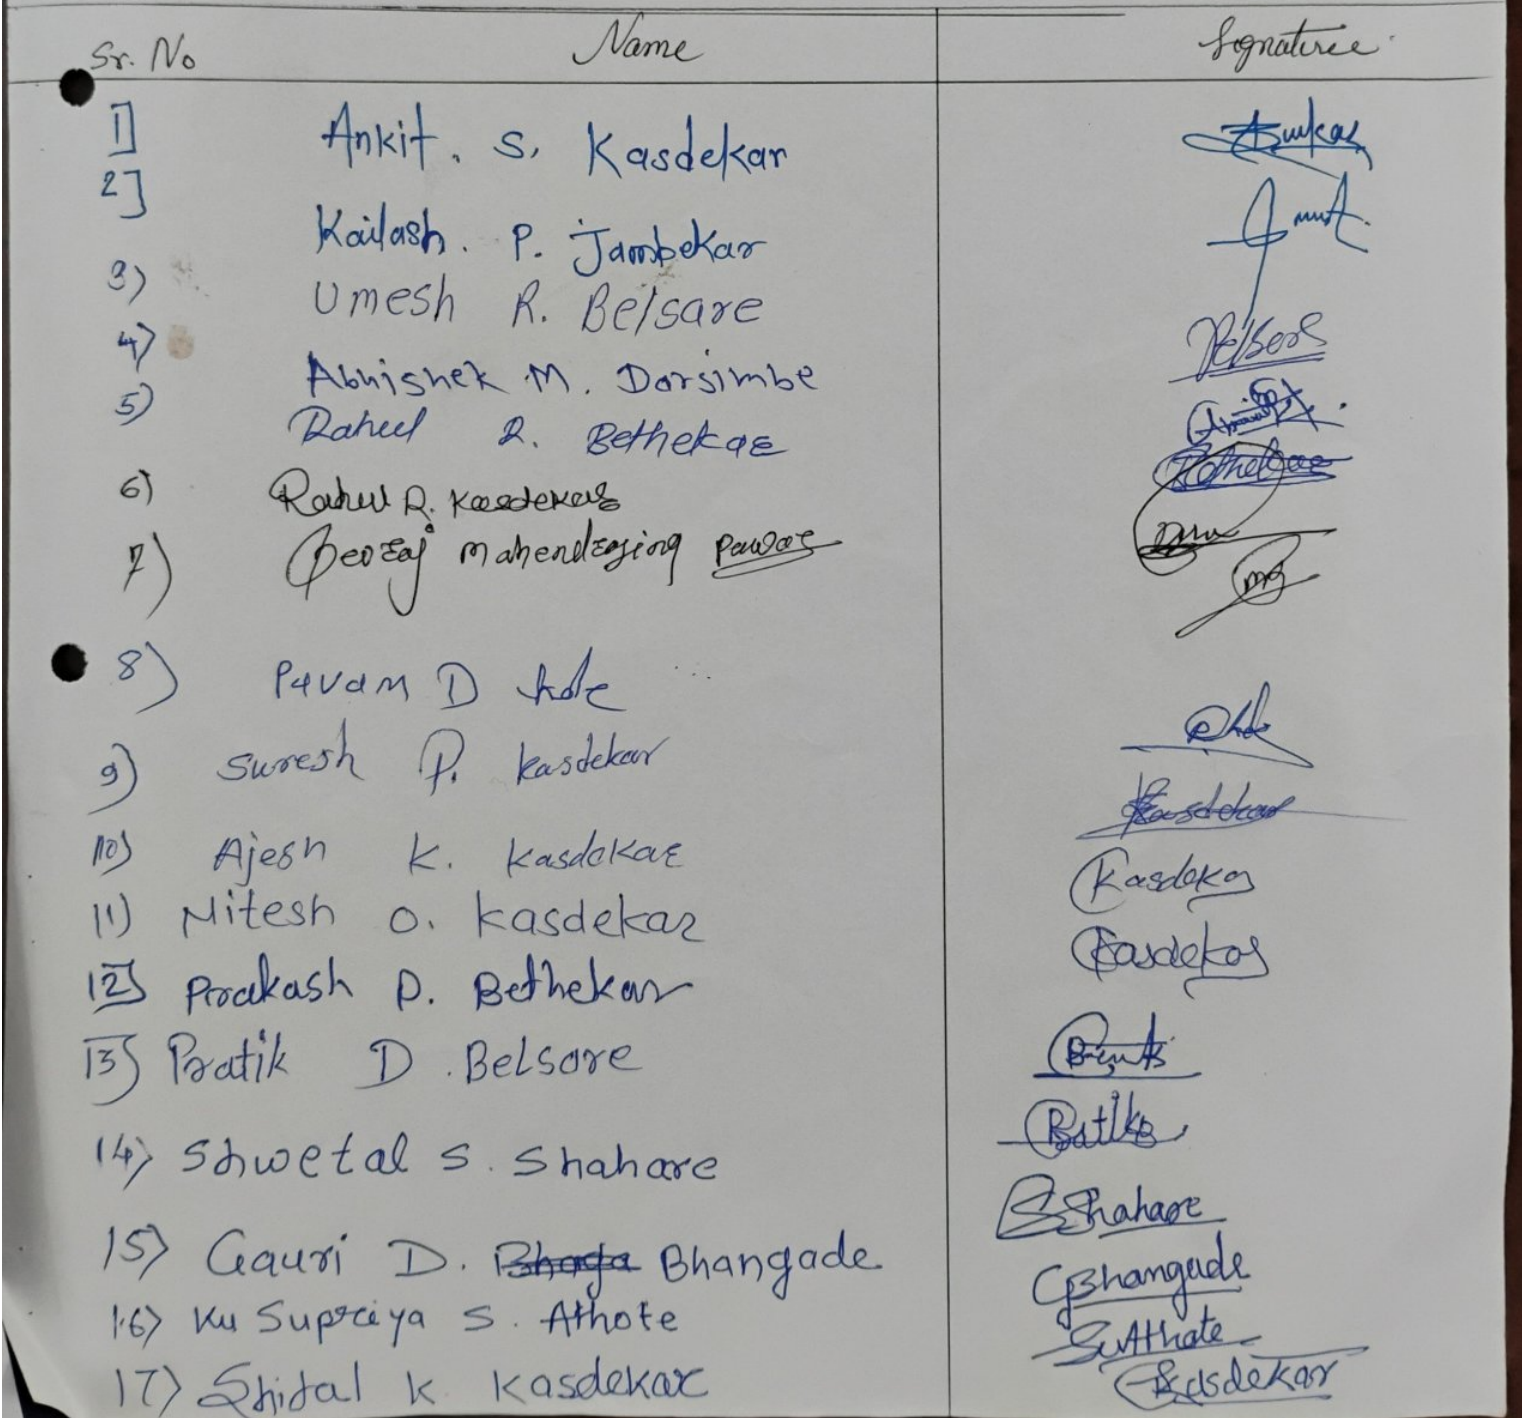 Sr. No Name Signature
1] Ankit. S. Kasdekar
2] Kailash. P. Jambekar
3) Umesh R. Belsare
4) Abhishek M. Dorsimbe
5) Rahul R. Bethekar Bethekar
6) Rahul R. Kasdekar
7) Devraj Mahendrasing Pawar
8) Pavan D
9) Suresh P. Kasdekar Kasdekar
10) Ajesh K. Kasdekar Kasdekar
11) Nitesh O. Kasdekar Kasdekar
12] Prakash P. Bethekar
13] Pratik D. Belsare
14) Shwetal S. Shahare SShahare
15) Gauri D. Bhaga Bhangade GBhangade
16) Ku Supriya S. Athote Athote
17) Shital K Kasdekar Kasdekar